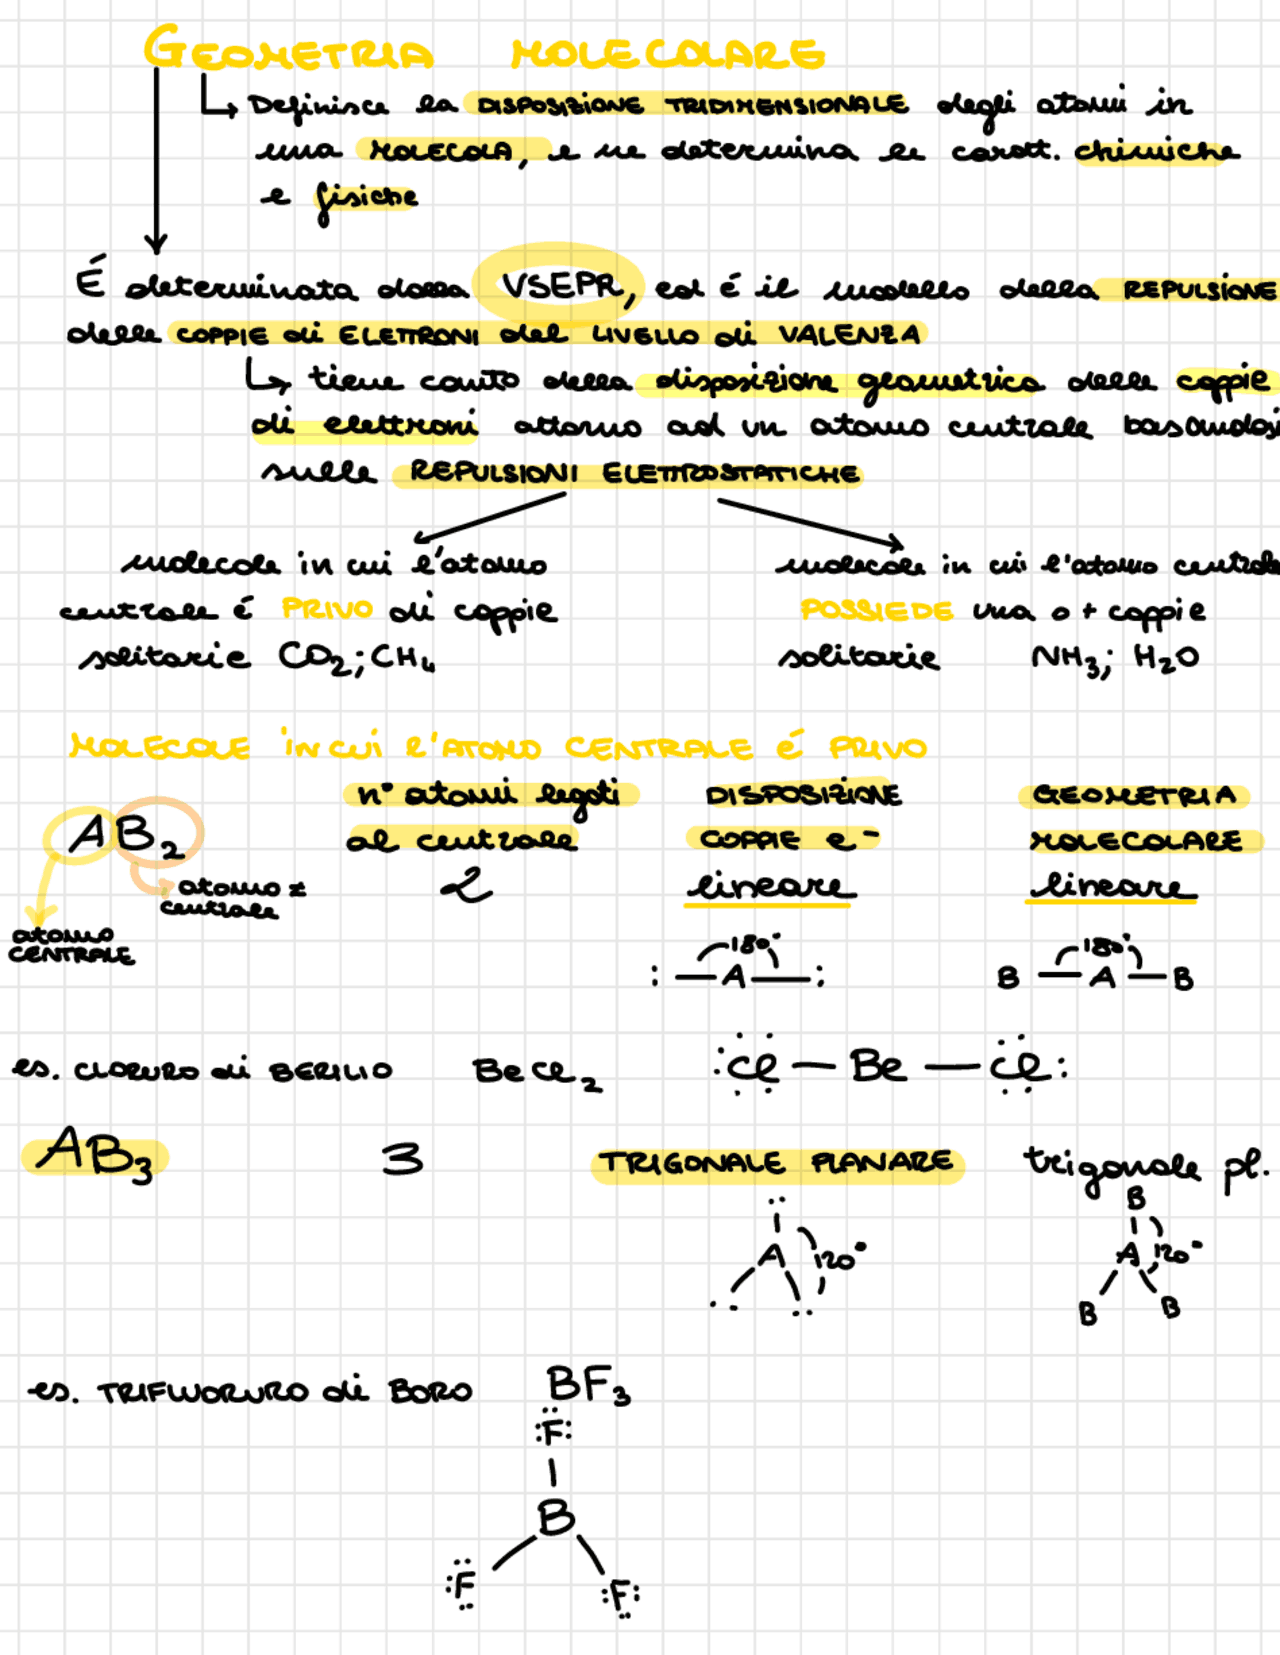 GEOMETRIA MOLECOLARE
↳ Definisce la DISPOSIZIONE TRIDIMENSIONALE degli atomi in
una MOLECOLA, e ne determina le caratt. chimiche
e fisiche
É determinata dalla VSEPR, ed é il modello della REPULSIONE
delle COPPIE di ELETTRONI del LIVELLO di VALENZA
↳ tiene conto della disposizione geometrica delle coppie
di elettroni attorno ad un atomo centrale basandosi
sulle REPULSIONI ELETTROSTATICHE
molecole in cui l'atomo
centrale é PRIVO di coppie
solitarie CO₂; CH₄
molecole in cui l'atomo centrale
POSSIEDE una o + coppie
solitarie NH₃; H₂O
MOLECOLE in cui l'ATOMO CENTRALE é PRIVO
n° atomi legati DISPOSIZIONE GEOMETRIA
AB₂ al centrale COPPIE e⁻ MOLECOLARE
atomo ≠ 2 lineare lineare
centrale
atomo
CENTRALE
180° 180°
: — A — : B — A — B
es. CLORURO di BERILIO BeCl₂ :Cl — Be — Cl:
AB₃ 3 TRIGONALE PLANARE trigonale pl.
B
A 120° A 120°
B B
es. TRIFLUORURO di BORO BF₃
:F:
B
:F :F: